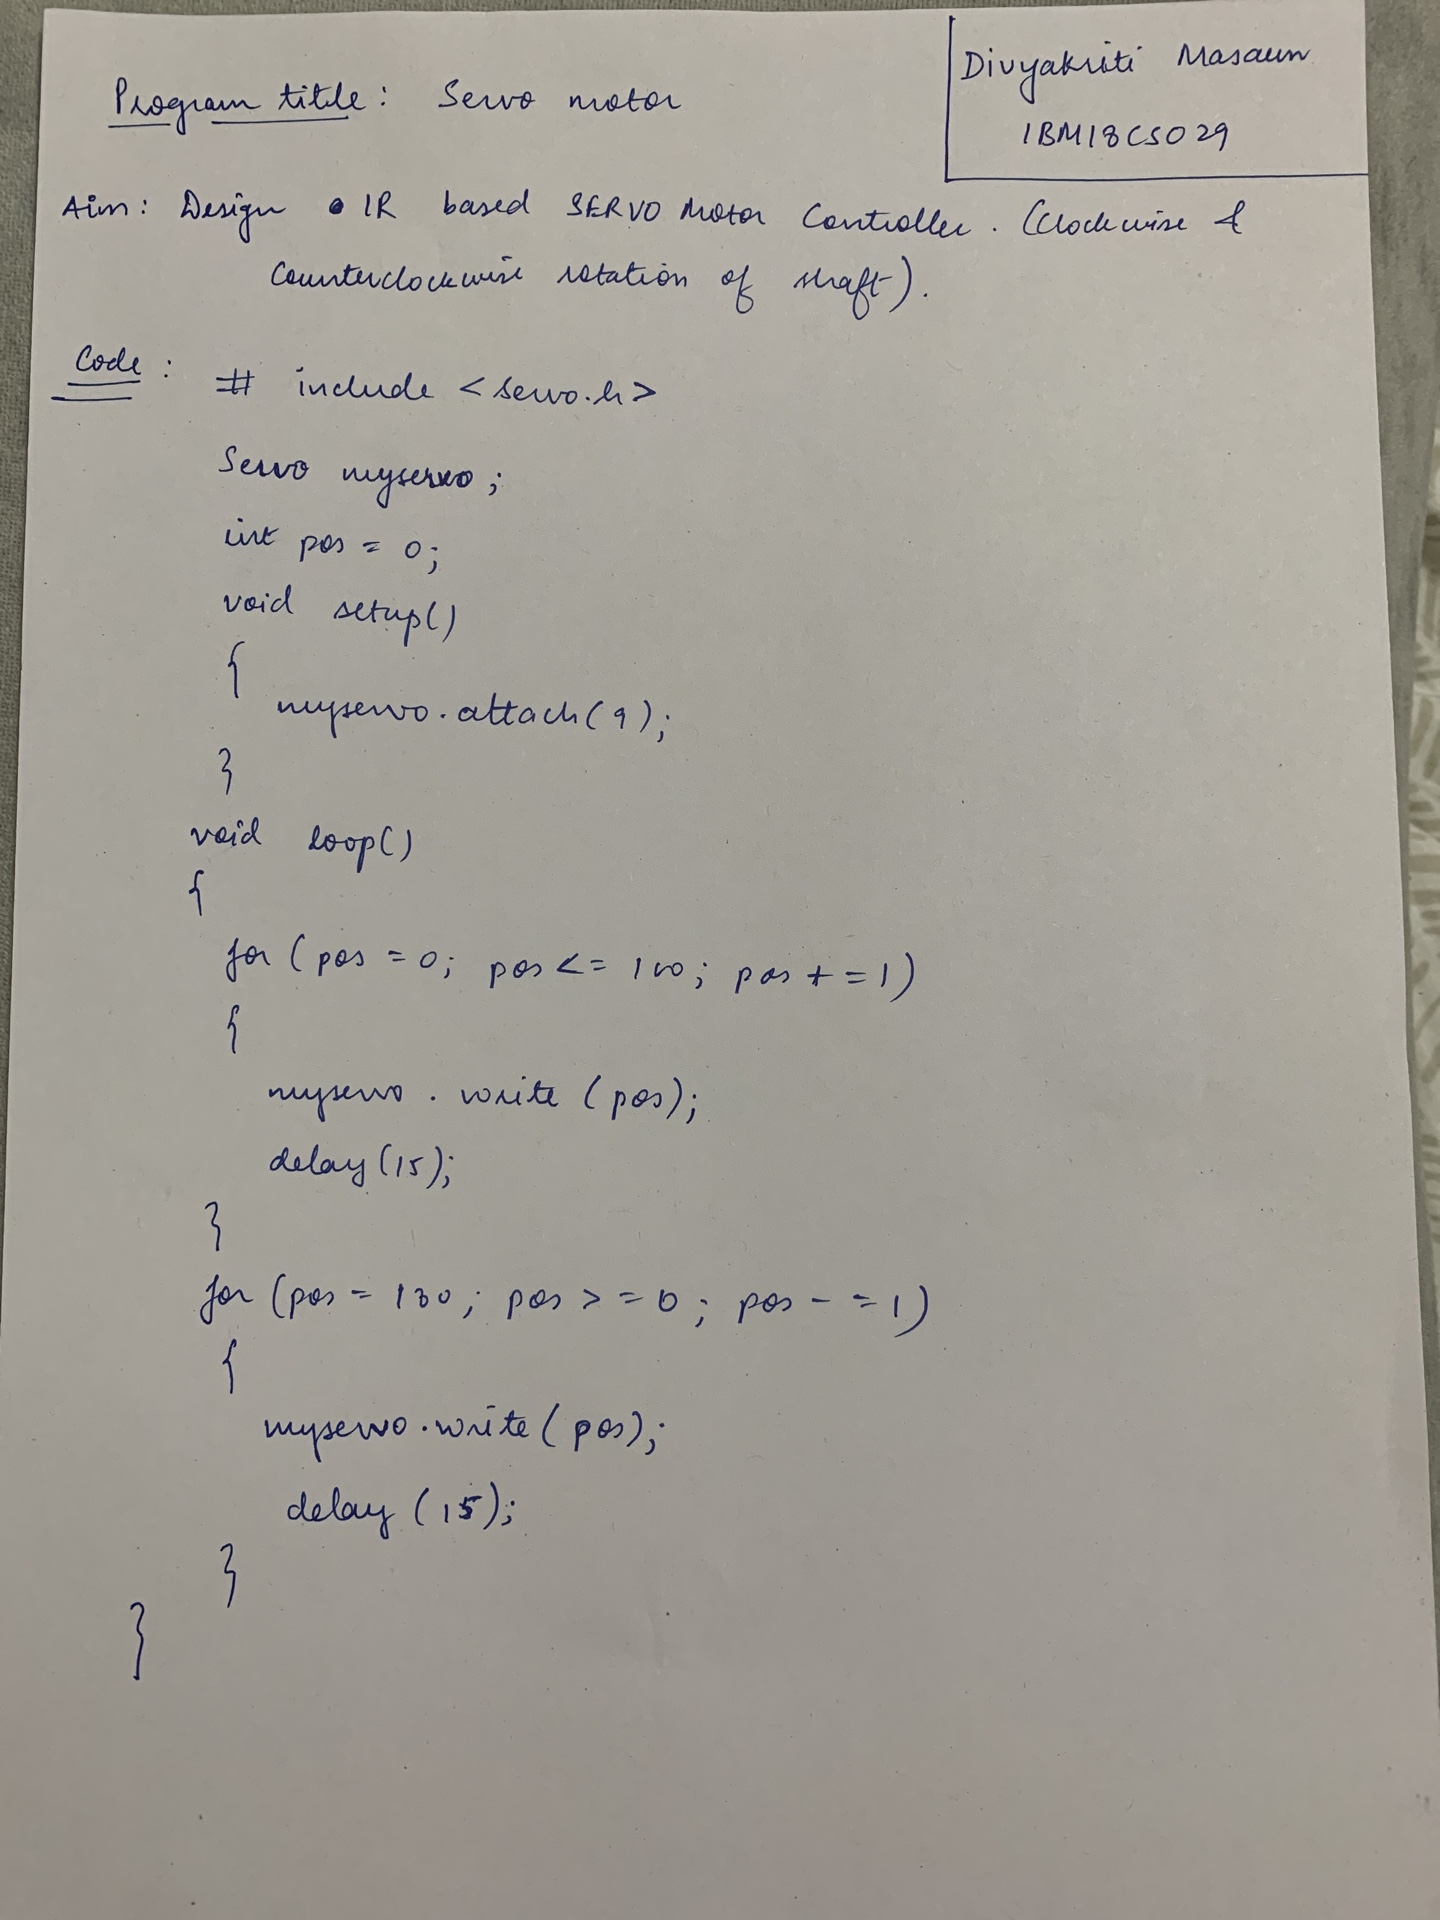 Divyakriti Masaun
1BM18CS029
Program title: Servo motor
Aim: Design IR based SERVO Motor Controller. (Clockwise &
Counterclockwise rotation of shaft).
Code: # include <servo.h>
Servo myservo;
int pos = 0;
void setup()
{
myservo.attach(9);
}
void loop()
{
for (pos = 0; pos <= 180; pos += 1)
{
myservo.write (pos);
delay(15);
}
for (pos = 180; pos >= 0; pos -= 1)
{
myservo.write (pos);
delay (15);
}
}